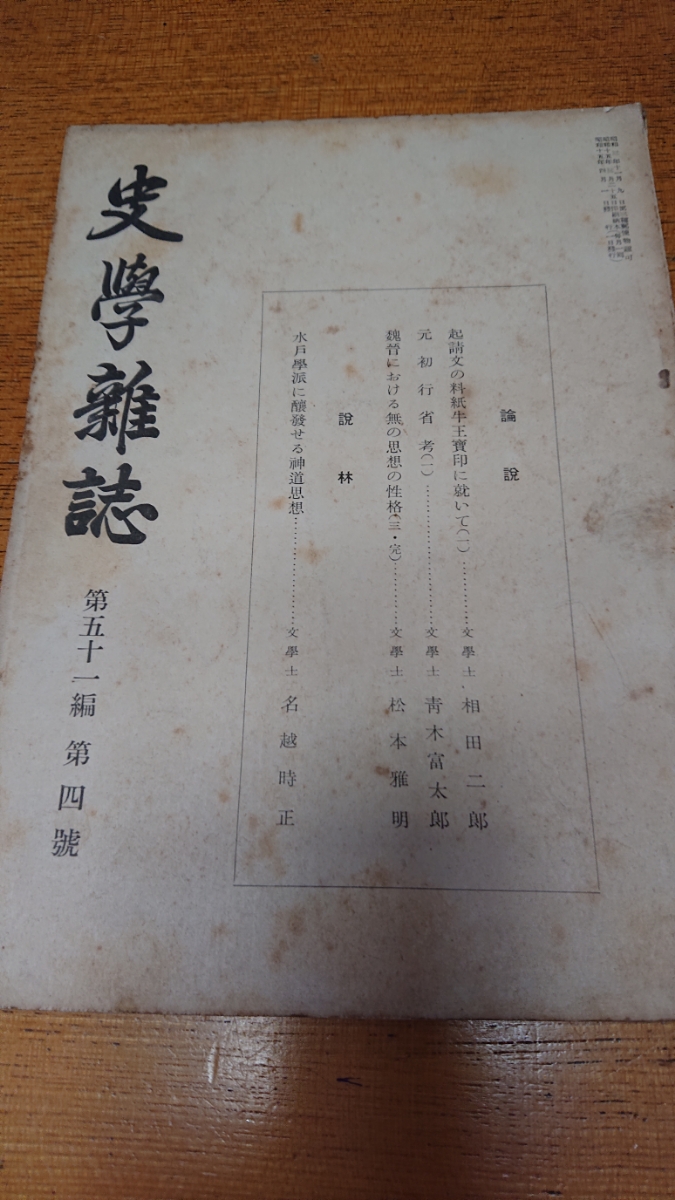 昭和十五年四月一日發行
論說
起請文の料紙牛王寶印に就いて(一)…………文學士 相田二郎
元初行省考(一)…………………文學士 靑木富太郎
魏晉における無の思想の性格(三・完)…………文學士 松本雅明
說林
水戶學派に釀發せる神道思想…………………文學士 名越時正
史學雜誌
第五十一編 第四號